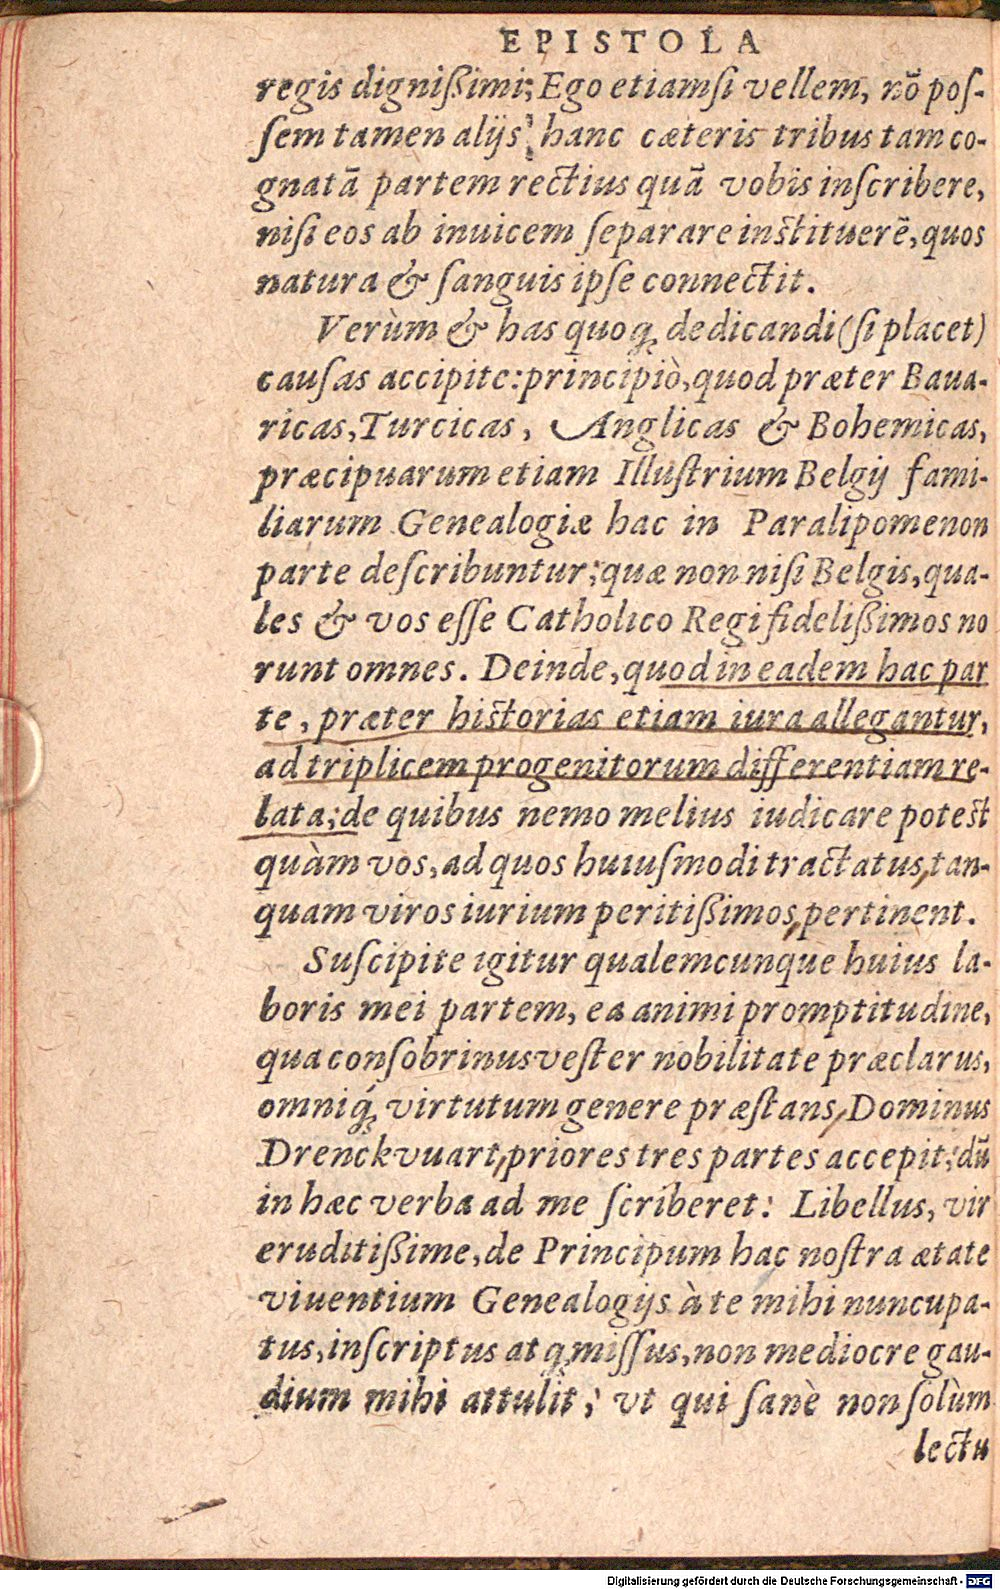 EPISTOLA
regis dignißimi; Ego etiamſi vellem, nō poſ-
ſem tamen alijs, hanc cæteris tribus tam co-
gnatā partem rectius quā vobis inſcribere,
niſi eos ab inuicem ſeparare inſtituerē, quos
natura & ſanguis ipſe connectit.
Verùm & has quoq; dedicandi (ſi placet)
cauſas accipite: principiò, quod præter Baua-
ricas, Turcicas, Anglicas & Bohemicas,
præcipuarum etiam Illuſtrium Belgij fami-
liarum Genealogiæ hac in Paralipomenon
parte deſcribuntur; quæ non niſi Belgis, qua-
les & vos eſſe Catholico Regi fidelißimos no
runt omnes. Deinde, quod in eadem hac par
te, præter hiſtorias etiam iura allegantur,
ad triplicem progenitorum differentiam re-
lata; de quibus nemo melius iudicare poteſt
quàm vos, ad quos huiuſmodi tractatus, tan-
quam viros iurium peritißimos, pertinent.
Suſcipite igitur qualemcunque huius la-
boris mei partem, ea animi promptitudine,
qua conſobrinus veſter nobilitate præclarus,
omniq́; virtutum genere præſtans, Dominus
Drenckvuart, priores tres partes accepit; dū
in hæc verba ad me ſcriberet: Libellus, vir
eruditißime, de Principum hac noſtra ætate
viuentium Genealogijs à te mihi nuncupa-
tus, inſcriptus atq; miſſus, non mediocre gau-
dium mihi attulit; vt qui ſanè non ſolùm
lectu
Digitalisierung gefördert durch die Deutsche Forschungsgemeinschaft - DFG